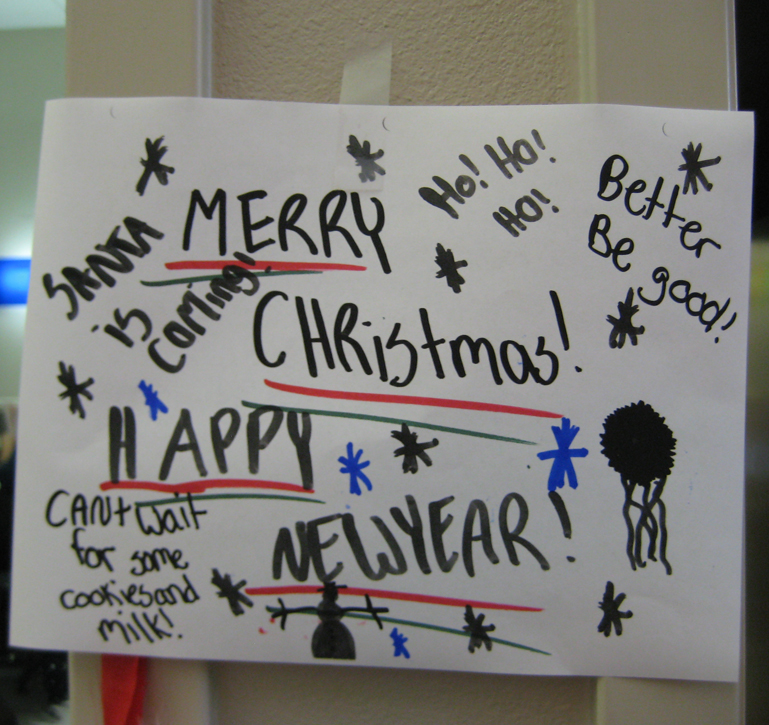 MERRY
CHRistmas!
HAPPY
NEWYEAR!
SANTA
is
coming!
Ho! Ho!
Ho!
Better
Be good!
CANt wait
for some
cookies and
milk!